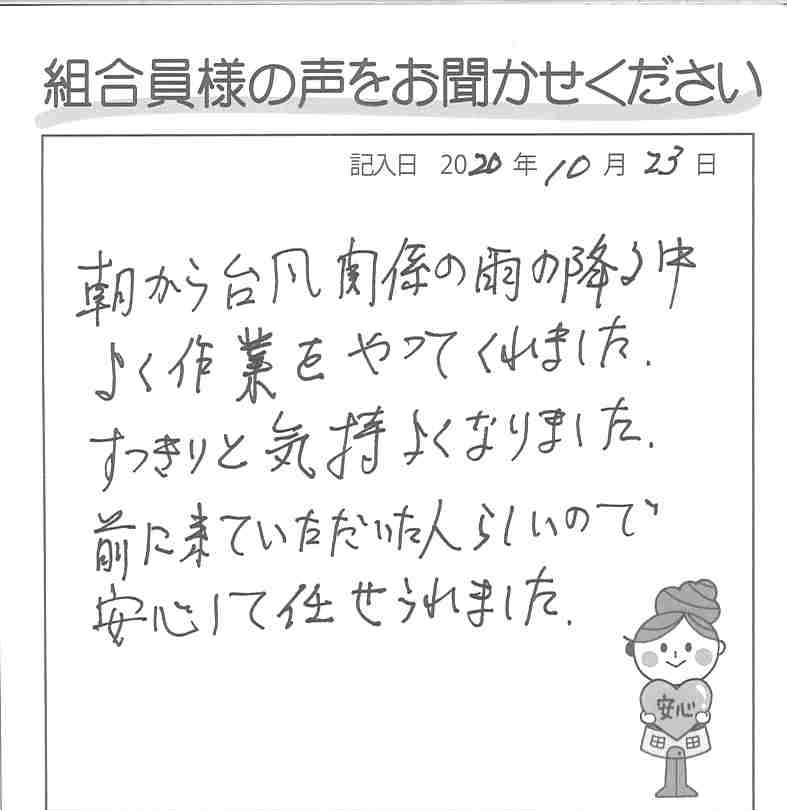 組合員様の声をお聞かせください
記入日 2020 年 10 月 23 日
朝から台風関係の雨の降る中
よく作業をやってくれました.
すっきりと気持よくなりました.
前に来ていただいた人らしいので
安心して任せられました.
安心